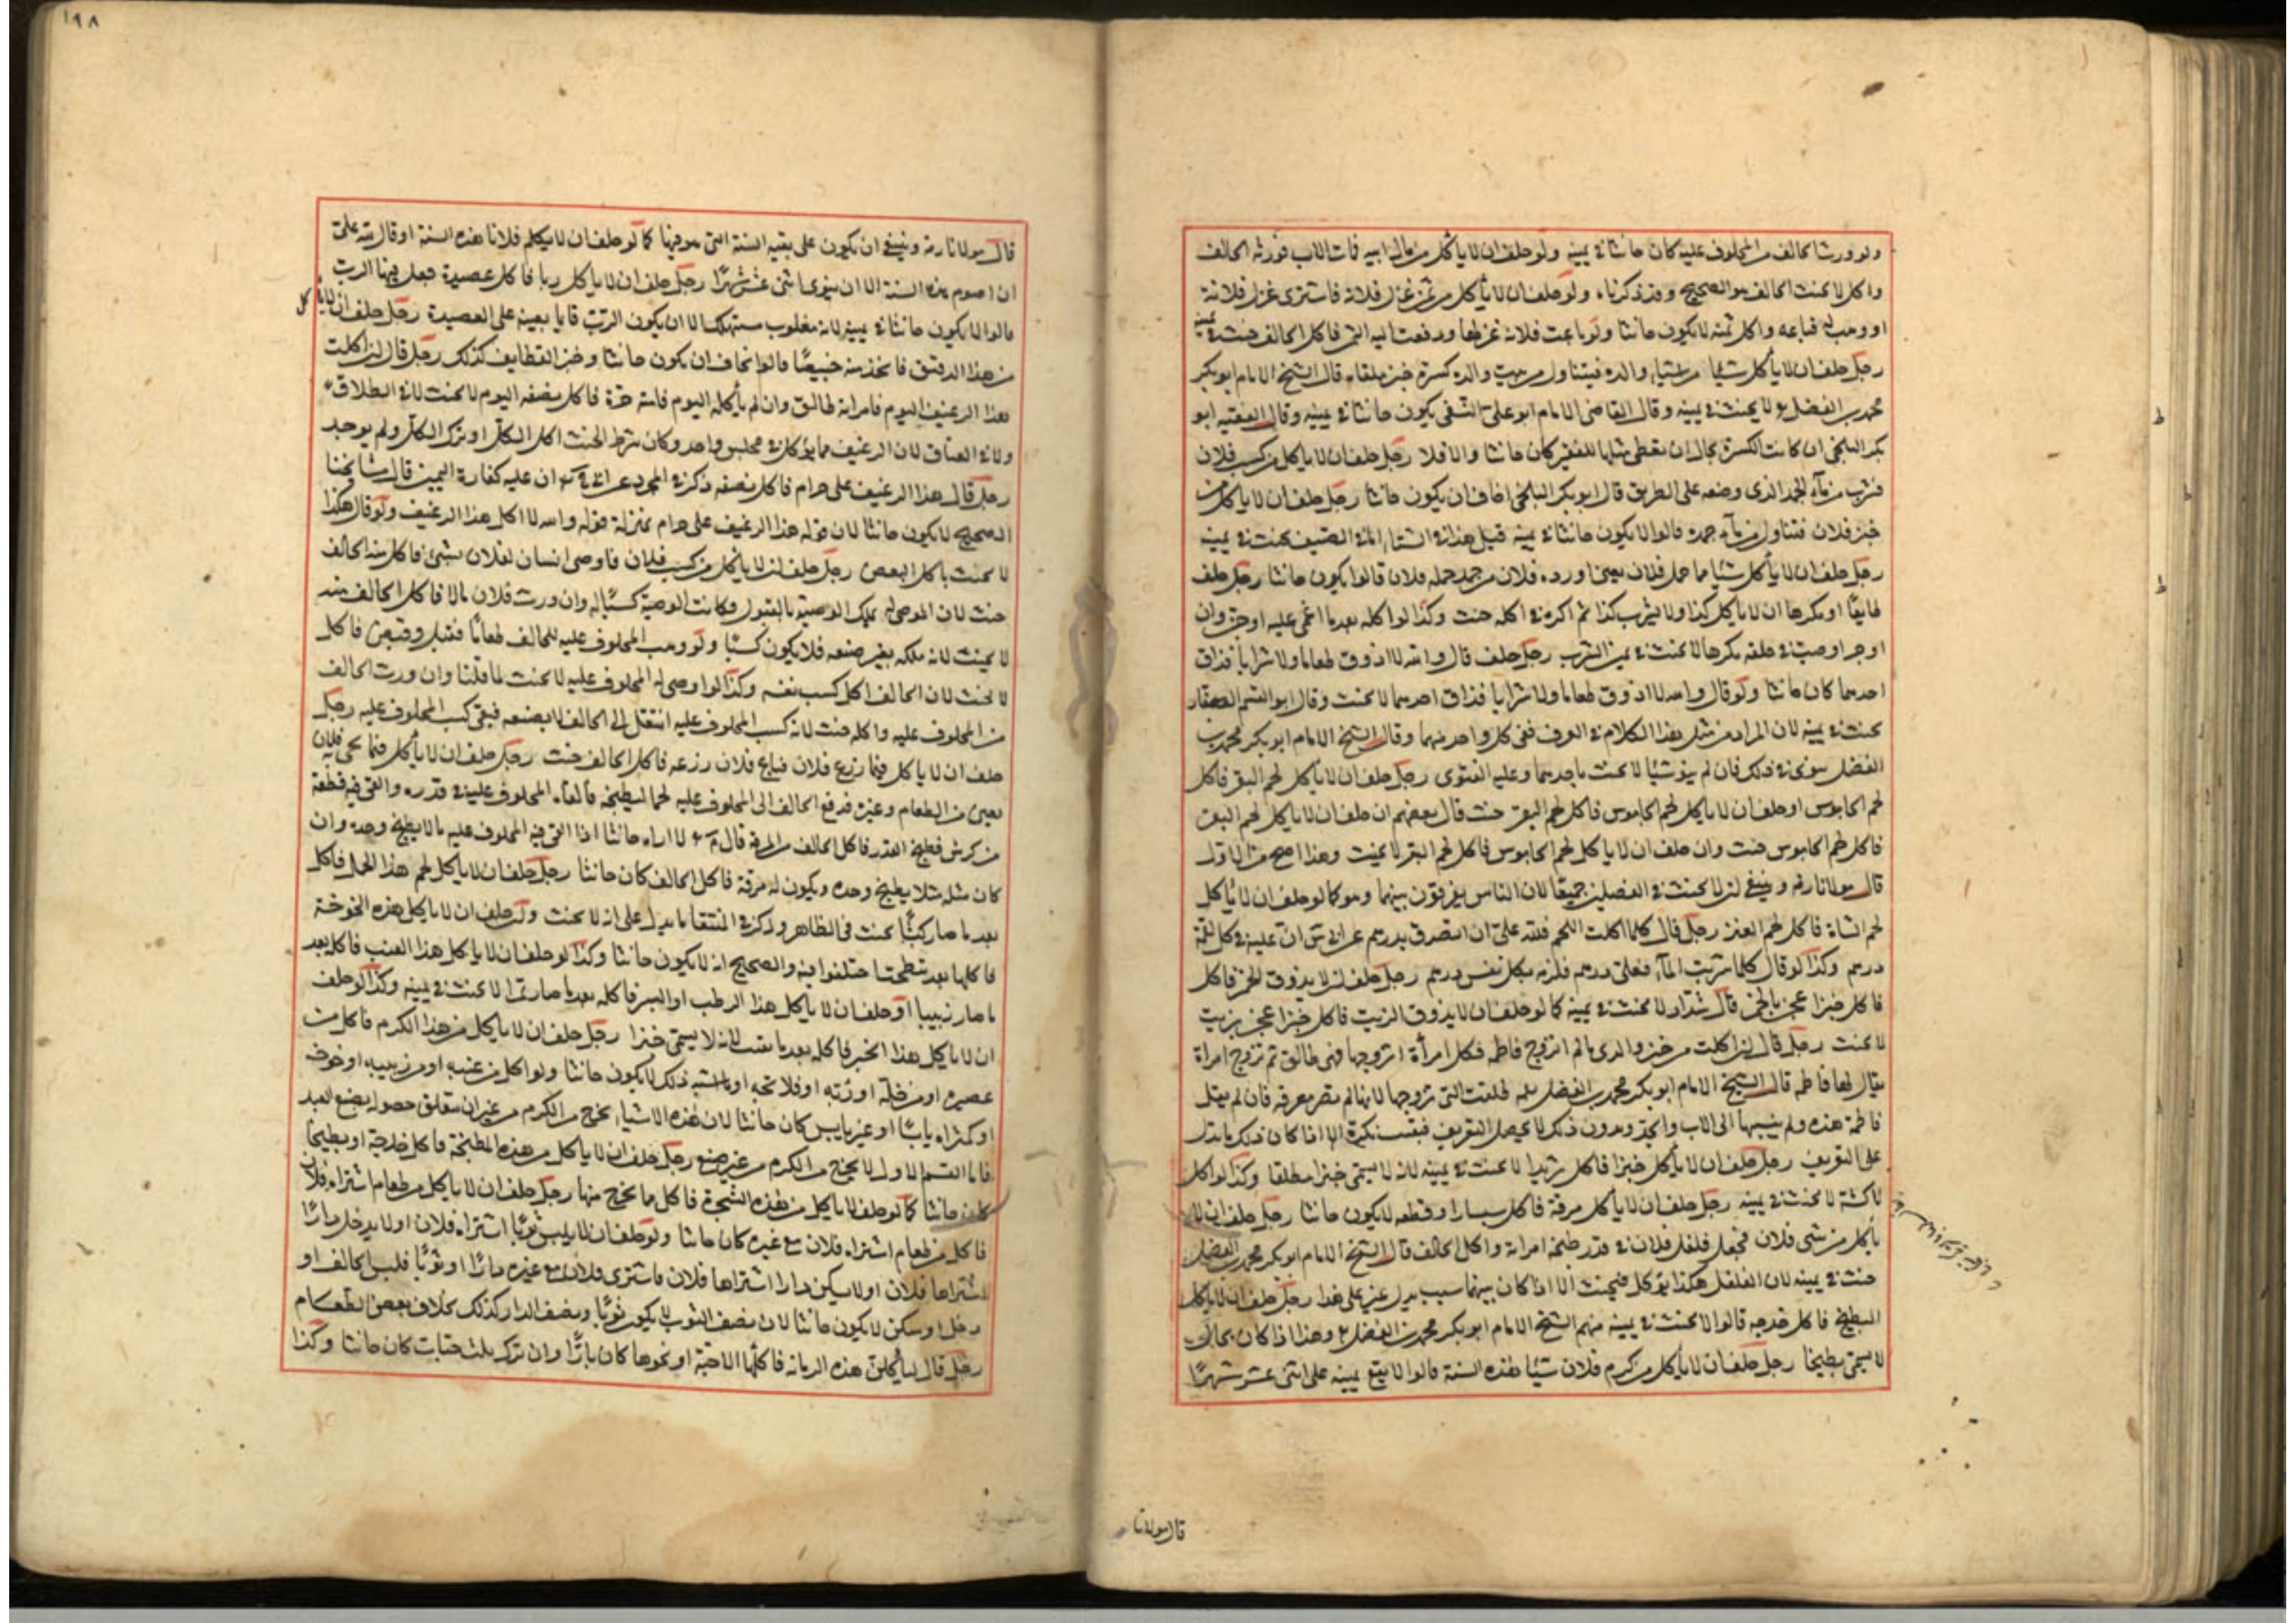 ولو ورث الحالف من المحلوف عليه كان حانثا في يمينه ولو حلف ان لا يأكل من مال ابيه فمات الاب فورثه الحالف
واكل لا يحنث الحالف هو الصحيح وقد ذكرناه ولو حلف ان لا يأكل من ثمن غزل فلانة فاشترى غزل فلانة
او وهب له فباعه واكل ثمنه لا يكون حانثا ولو باعت فلانة غزلها ودفعت اليه الثمن فاكل الحالف حنث في يمينه
رجل حلف ان لا يأكل شيئا من والده فيتناول من بيت والده كسرة خبز ملقاة قال الشيخ الامام ابو بكر
محمد بن الفضل لا يحنث في يمينه وقال القاضى الامام ابو على النسفى يكون حانثا في يمينه وقال الفقيه ابو
بكر البلخى ان كانت الكسرة بحال ان يعطى مثلها للفقير كان حانثا والا فلا رجل حلف ان لا يأكل من كسب فلان
فشرب من ماء الجمد الذى وضعه على الطريق قال ابو بكر البلخى اخاف ان يكون حانثا رجل حلف ان لا يأكل من
خبز فلان فتناول من ماء جمده قالوا لا يكون حانثا في يمينه قيل هذا في الشتاء اما في الصيف يحنث في يمينه
رجل حلف ان لا يأكل شيئا مما حمل فلان يعنى اورده فلان من جمد حمله فلان قالوا يكون حانثا رجل حلف
طايعا او مكرها ان لا يأكل كذا ولا يشرب كذا ثم اكره في اكله حنث وكذا لو اكله بعد ما اغمى عليه او جن وان
اوجر او صب في حلقه مكرها لا يحنث في يمين الشرب رجل حلف قال والله لا اذوق طعاما ولا شرابا فذاق
احدهما كان حانثا ولو قال والله لا اذوق طعاما ولا شرابا فذاق احدهما لا يحنث وقال ابو القسم الصفار
يحنث في يمينه لان المراد من مثل هذا الكلام في العرف نفى كل واحد منهما وقال الشيخ الامام ابو بكر محمد بن
الفضل ينوى في ذلك فان لم ينو شيئا لا يحنث باحدهما وعليه الفتوى رجل حلف ان لا يأكل لحم البقر فاكل
لحم الجاموس او حلف ان لا يأكل لحم الجاموس فاكل لحم البقر حنث قال بعضهم ان حلف ان لا يأكل لحم البقر
فاكل لحم الجاموس حنث وان حلف ان لا يأكل لحم الجاموس فاكل لحم البقر لا يحنث وهذا اصح من الاول
قال مولانا رضه وينبغى ان لا يحنث في الفصلين جميعا لان الناس يفرقون بينهما وهو كما لو حلف ان لا يأكل
لحم الشاة فاكل لحم العنز رجل قال كلما اكلت اللحم فلله على ان اتصدق بدرهم عن ابى س ان عليه في كل لقمة
درهم وكذا لو قال كلما شربت الماء فعلى درهم فلزمه بكل نفس درهم رجل حلف ان لا يذوق الخمر فاكل
فاكل خبزا عجن بالخمر قال شداد لا يحنث في يمينه كما لو حلف ان لا يذوق الزيت فاكل خبزا عجن بزيت
لا يحنث رجل قال ان اكلت من خبز والدى ما لم اتزوج فاطمة فكل امرأة اتزوجها فهى طالق ثم تزوج امراة
يقال لها فاطمة قال الشيخ الامام ابو بكر محمد بن الفضل طلقت التى تزوجها لانها لم تصر معرفة فان لم يقل
فاطمة هذه ولم ينسبها الى الاب والجد وبدون ذلك لا يحصل التعريف فبقيت نكرة الا اذا كان ذلك ما يدل
على التعريف رجل حلف ان لا يأكل خبزا فاكل ثريدا لا يحنث في يمينه لانه لا يسمى خبزا مطلقا وكذا لو اكل
لاكشة لا يحنث في يمينه رجل حلف ان لا يأكل مرقة فاكل سبسارا وقطعه لا يكون حانثا رجل حلف ان لا
يأكل من شى فلان فجعل فلفل فلان في قدر طبخه امراته واكل الحالف قال الشيخ الامام ابو بكر محمد بن الفضل
حنث في يمينه لان الفلفل هكذا يؤكل فيحنث الا اذا كان بينهما سبب يدل على غير هذا رجل حلف ان لا يأكل
البطيخ فاكل حدجه قالوا لا يحنث في يمينه منهم الشيخ الامام ابو بكر محمد بن الفضل وهذا اذا كان بحال
لا يسمى بطيخا رجل حلف ان لا يأكل من كرم فلان شيئا هذه السنة قالوا لا يقع يمينه على اثنى عشر شهرا
قال مولانا
١٩٨
قال مولانا رضه وينبغى ان يكون على بقية السنة التى هو فيها كما لو حلف ان لا يكلم فلانا هذه السنة او قال لله على
ان اصوم هذه السنة الا ان ينوى اثنى عشر شهرا رجل حلف ان لا يأكل ربا فاكل عصيدة جعل فيها الرب
قالوا لا يكون حانثا في يمينه لانه مغلوب مستهلك الا ان يكون الرب قايما بعينه على العصيدة رجل حلف ان لا يأكل
من هذا الدقيق فاتخذ منه خبيصا قالوا اخاف ان يكون حانثا وخبز القطايف كذلك رجل قال ان اكلت
هذا الرغيف اليوم فامراته طالق وان لم يأكله اليوم فامته حرة فاكل نصفه اليوم لا يحنث لا في الطلاق
ولا في العتاق لان الرغيف مما يؤكل في مجلس واحد وكان شرط الحنث اكل الكل او ترك الكل ولم يوجد
رجل قال هذا الرغيف على حرام فاكل نصفه ذكر في المجرد عن ابى ان عليه كفارة اليمين قال مشايخنا
الصحيح لا يكون حانثا لان قوله هذا الرغيف على حرام بمنزلة قوله والله لا اكل هذا الرغيف ولو قال هكذا
لا يحنث باكل البعض رجل حلف ان لا يأكل من كسب فلان فاوصى انسان لفلان بشئ فاكل منه الحالف
حنث لان الموصى له يملك الوصية بالقبول وكانت الوصية كسبا له وان ورث فلان مالا فاكل الحالف منه
لا يحنث لانه ملكه بغير صنعه فلا يكون كسبا ولو وهب المحلوف عليه للحالف طعاما فقبل وقبض فاكل
لا يحنث لان الحالف اكل كسب نفسه وكذا لو اوصى له المحلوف عليه لا يحنث لما قلنا وان ورث الحالف
من المحلوف عليه واكله حنث لانه كسب المحلوف عليه انتقل الى الحالف لا بصنعه فبقى كسب المحلوف عليه رجل
حلف ان لا يأكل فيما زرع فلان فباع فلان زرعه فاكل الحالف حنث رجل حلف ان لا يأكل فيما يجى به فلان
يعنى من الطعام وغيره فدفع الحالف الى المحلوف عليه لحما ليطبخه فالقاه المحلوف عليه في قدره والقى فيه قطعة
من كرش فطبخ القدر فاكل الحالف من المرقة قال لا اراه حانثا اذا القى فيه المحلوف عليه ما لا يطبخ وحده وان
كان مثله مثلا يطبخ وحده ويكون له مرقة فاكل الحالف كان حانثا رجل حلف ان لا يأكل لحم هذا الحمل فاكل
بعد ما صار كبشا يحنث فى الظاهر وذكر في المنتقا ما يدل على انه لا يحنث ولو حلف ان لا يأكل هذه الخوخة
فاكلها بعد اختلفوا فيه والصحيح انه لا يكون حانثا وكذا لو حلف ان لا يأكل هذا العنب فاكله بعد
ما صار زبيبا او حلف ان لا يأكل هذا الرطب او البسر فاكله بعد ما صار تمرا لا يحنث في يمينه وكذا لو حلف
ان لا يأكل هذا الخبز فاكله بعد ما لانه لا يسمى خبزا رجل حلف ان لا يأكل من هذا الكرم فاكل من
عصيره او من خله او ربه او ما اشبه ذلك لا يكون حانثا ولو اكل من عنبه او من زبيبه او خوخه
او كمثراه يابسا او غير يابس كان حانثا لان هذه الاشياء تخرج من الكرم من غير ان يتعلق حصوله بصنع العبد
فاما القسم الاول لا يخرج من الكرم من غير صنع رجل حلف ان لا يأكل من هذه المبطخة فاكل حدجة او بطيخا
كان حانثا كما لو حلف لا يأكل من هذه الشجرة فاكل ما يخرج منها رجل حلف ان لا يأكل من طعام اشتراه فلان
فاكل من طعام اشتراه فلان مع غيره كان حانثا ولو حلف ان لا يلبس ثوبا اشتراه فلان او لا يدخل دارا
اشتراها فلان او لا يسكن دارا اشتراها فلان فاشترى فلان مع غيره دارا او ثوبا فلبس الحالف او
دخل او سكن لا يكون حانثا لان نصف الثوب لا يكون ثوبا ونصف الدار كذلك بخلاف بعض الطعام
رجل قال ليأكلن هذه الرمانة فاكلها الا حبة او نحوها كان بارا وان ترك ثلث حبات كان حانثا وكذا